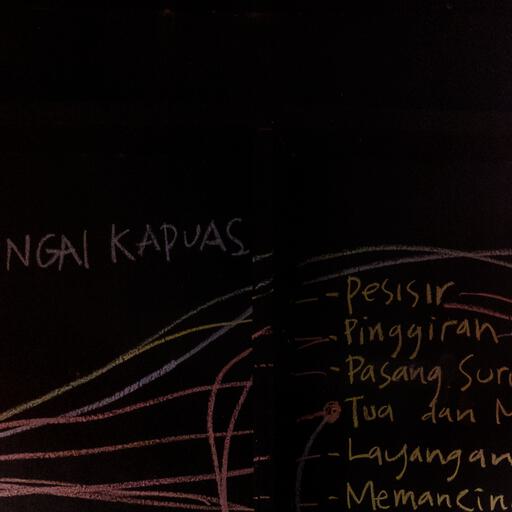 NGAI KAPUAS
- Pesisir
- Pinggiran
- Pasang Sur
Tua dan M
- Layangan
- Memancin